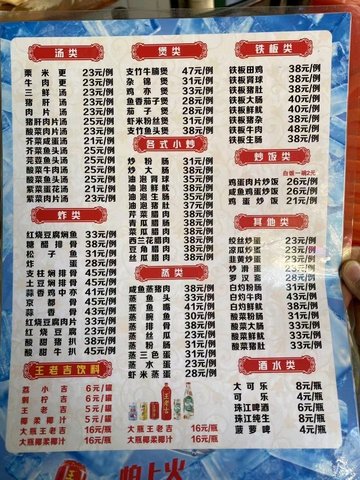 汤类
粟米更 23元/例
牛肉更 23元/例
三鲜汤 23元/例
猪肝汤 23元/例
肉片汤 23元/例
猪肝肉片汤 25元/例
酸菜肉片汤 23元/例
芥菜咸蛋汤 21元/例
芥菜鱼头汤 25元/例
芫荽鱼头汤 25元/例
酸菜牛肉汤 25元/例
酸菜鱼头汤 25元/例
紫菜蛋花汤 21元/例
紫菜肉片汤 23元/例
炸类
红烧豆腐焖鱼 33元/例
糖醋排骨 38元/例
松子鱼 31元/例
炸蛋 28元/例
支柱焖排骨 45元/例
土豆焖排骨 45元/例
蒜香鸡中亦 41元/例
京都骨 45元/例
蒜香骨 43元/例
红烧豆腐肉片 33元/例
红烧豆腐 23元/例
酸甜猪扒 38元/例
酸甜牛扒 45元/例
王老吉饮料
荔小吉 6元/罐
刺柠吉 6元/罐
王老吉 5元/罐
椰柔椰汁 5元/罐
大瓶王老吉 16元/瓶
大瓶椰柔椰汁 16元/瓶
煲类
支竹牛腩煲 47元/例
杂锦煲 31元/例
鸡亦煲 33元/例
鱼香茄子煲 28元/例
茄子煲 28元/例
虾米粉丝煲 31元/例
支竹鱼头煲 38元/例
各式小炒
炒粉肠 31元/例
炒大肠 38元/例
油泡肾球 35元/例
油泡鲜鱿 38元/例
油泡生肠 35元/例
油泡猪肚 37元/例
芹菜腊肉 38元/例
青瓜腊肉 38元/例
菜心腊肉 38元/例
西兰花腊肉 38元/例
豆角腊肉 38元/例
丝瓜腊肉 38元/例
蒸类
咸鱼蒸猪肉 38元/例
蒸鱼头 33元/例
蒸鱼嘴 41元/例
蒸鱼腩 30元/例
蒸排骨 38元/例
蒸丝瓜 23元/例
蒸豆腐 23元/例
蒸三色蛋 23元/例
蒸水蛋 23元/例
虾米蒸蛋 28元/例
大瓶王老吉 16元/瓶
大瓶椰柔椰汁 16元/瓶
铁板类
铁板田鸡 38元/例
铁板肾球 38元/例
铁板猪肚 38元/例
铁板大肠 40元/例
铁板鲜鱿 40元/例
铁板猪杂 38元/例
铁板牛肉 48元/例
铁板生肠 38元/例
炒饭类
白饭一碗2元
鸡蛋肉片炒饭 26元/例
咸鱼鸡蛋炒饭 26元/例
鸡蛋炒饭 21元/例
其他类
胶丝炒蛋 23元/例
凉瓜炒蛋 23元/例
韭黄炒蛋 23元/例
炒滑蛋 23元/例
罗汉斋 28元/例
白灼粉肠 31元/例
白灼牛肉 43元/例
白灼猪肚 37元/例
白灼鲜鱿 38元/例
酸菜粉肠 33元/例
酸菜大肠 33元/例
酸菜鲜鱿 38元/例
酸菜猪肚 33元/例
酒水类
大可乐 8元/瓶
可乐 4元/瓶
珠江啤酒 6元/瓶
珠江纯生 8元/瓶
菠萝啤 4元/瓶
怕上火